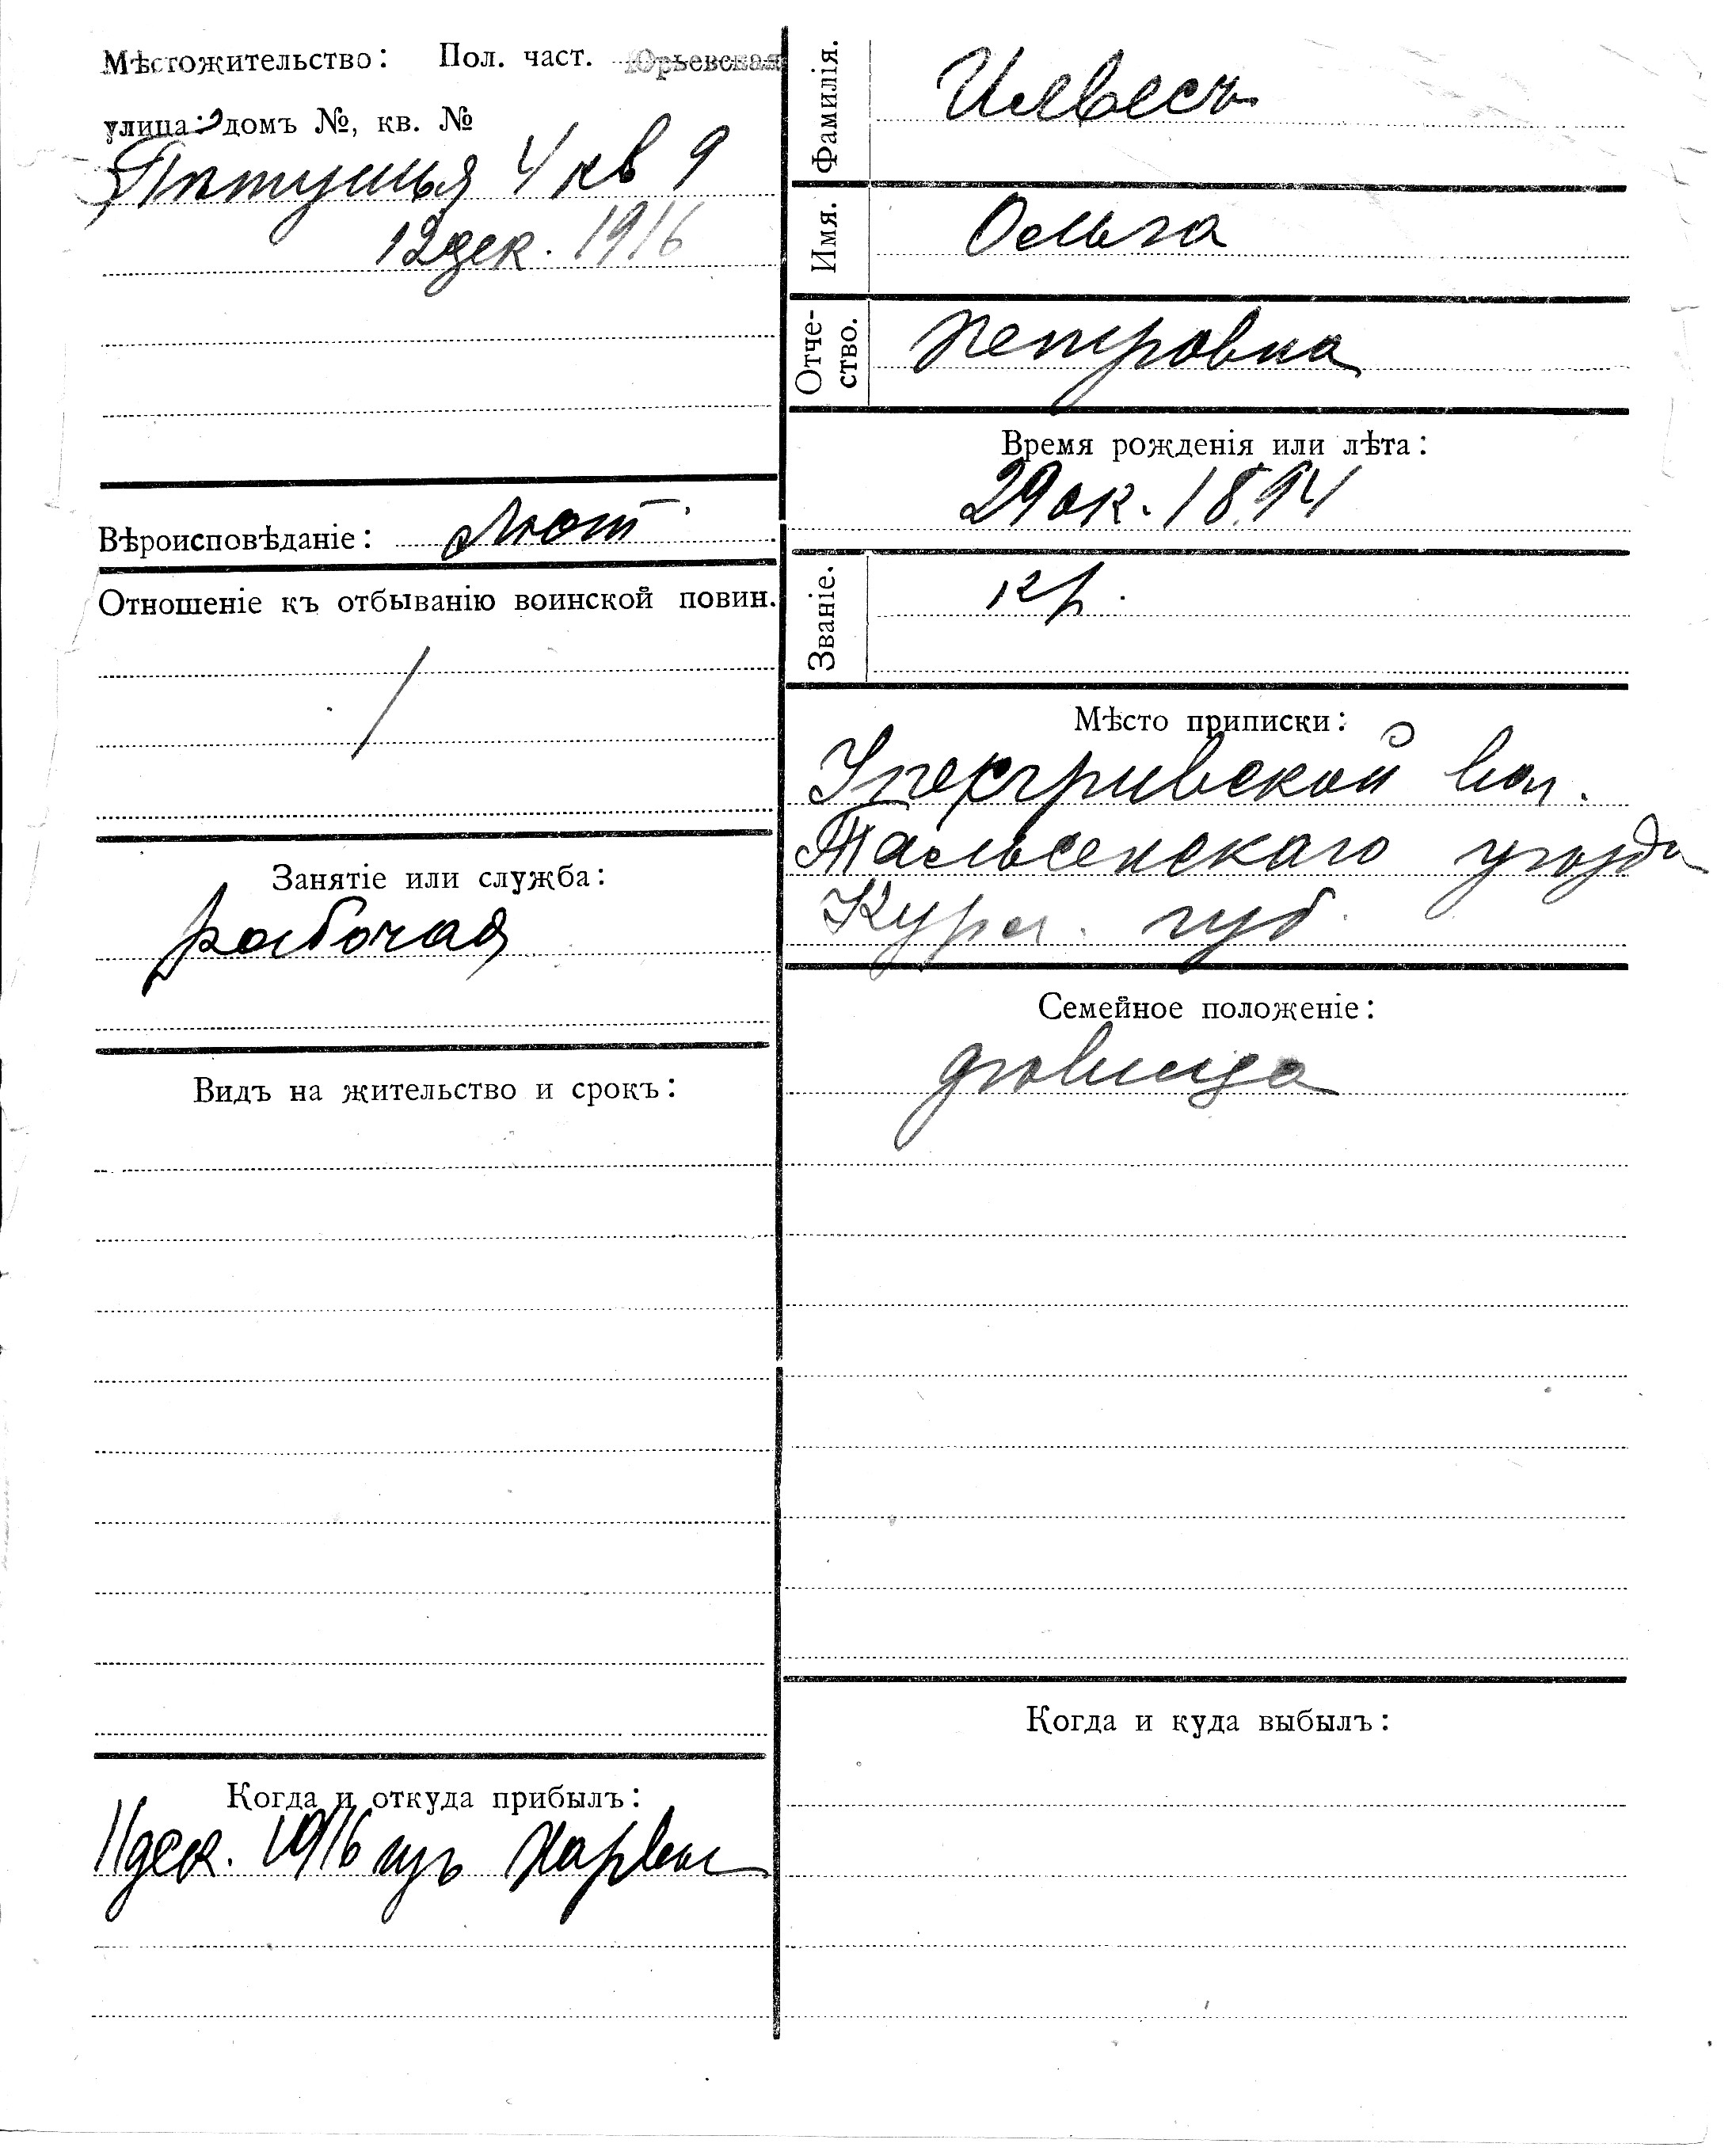 Мѣстожительство: Пол. част. Юрьевская
улица, домъ №, кв. №
Пѣтушья 4 кв 9
12 дек. 1916
Вѣроисповѣданіе: Лют.
Отношеніе къ отбыванію воинской повин.
/
Занятіе или служба:
рабочая
Видъ на жительство и срокъ:
Когда и откуда прибылъ:
11 дек. 1916 изъ Нарвы
Фамилія. Илвесъ
Имя. Ольга
Отче-
ство. Петровна
Время рожденія или лѣта:
29 ок. 1894
Званіе. кр.
Мѣсто приписки:
вол.
Тальсенскаго уѣзда
Курл. губ.
Семейное положеніе:
дѣвица
Когда и куда выбылъ: